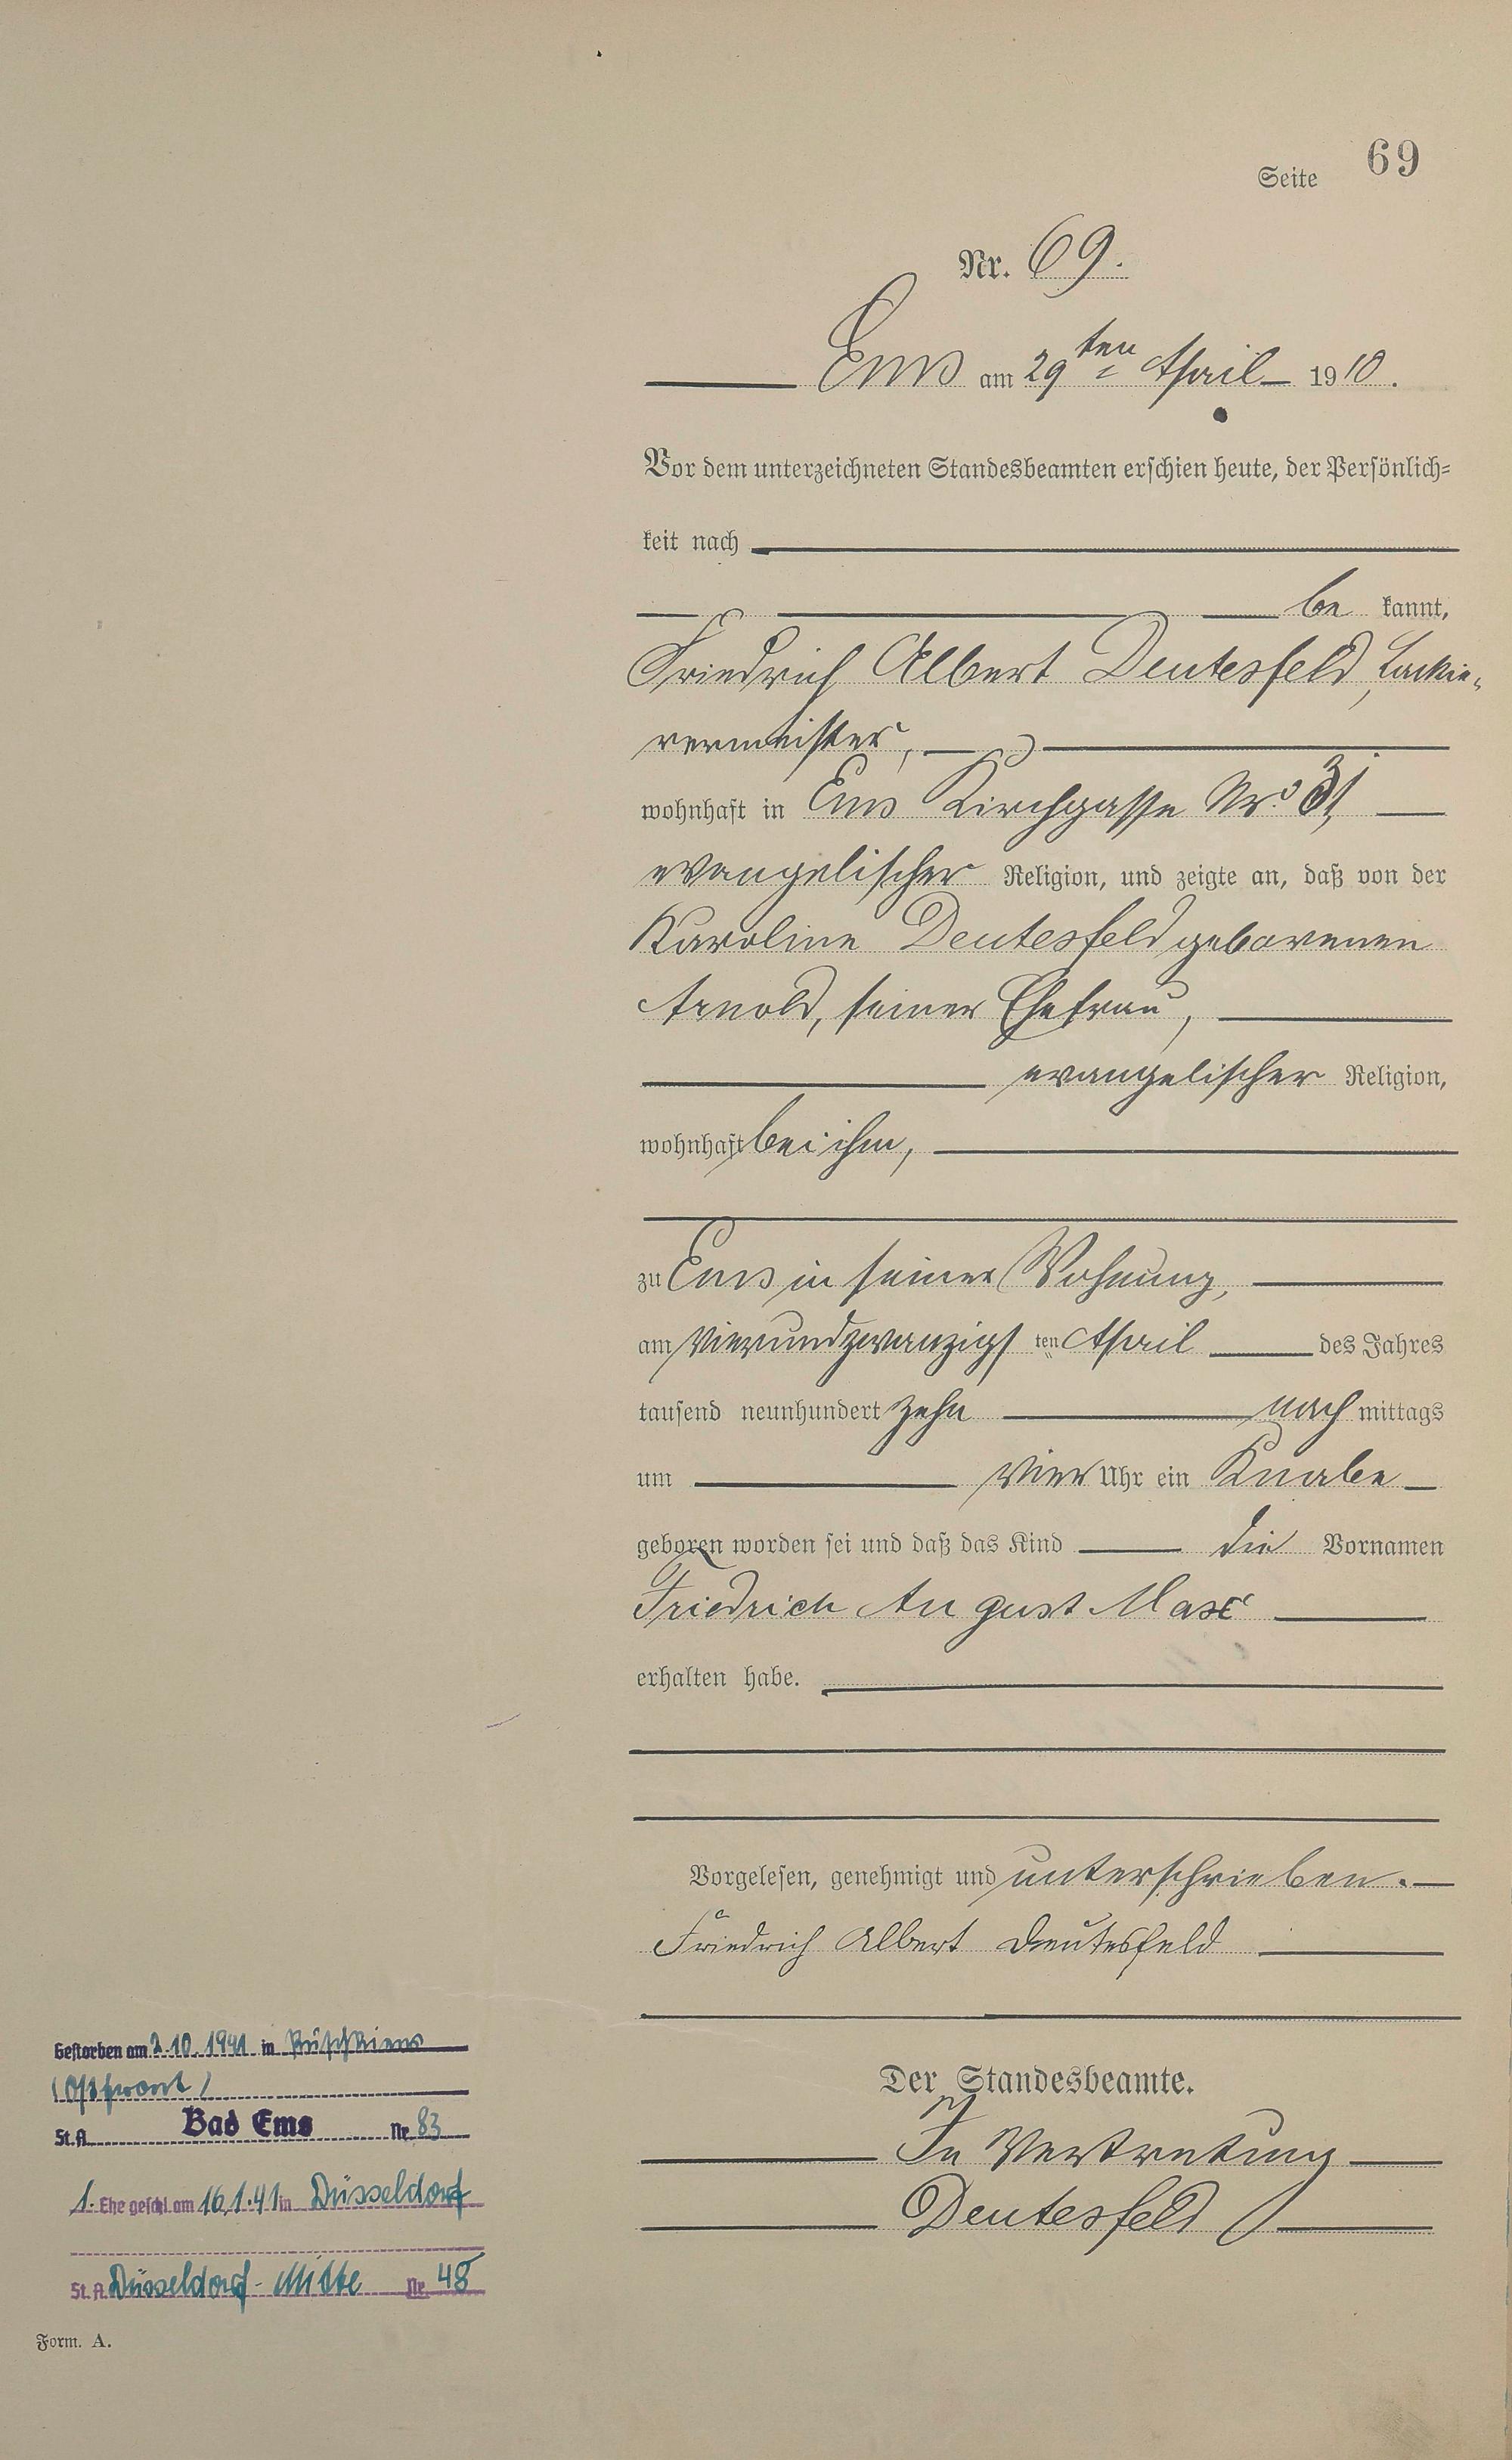 Seite 69
Nr. 69.
Ems am 29ten April 1910.
Vor dem unterzeichneten Standesbeamten erschien heute, der Persönlich-
keit nach
be kannt,
Friedrich Albert Deutesfeld, Lackie-
rermeister,
wohnhaft in Ems Kirchgasse No. 31,
evangelischer Religion, und zeigte an, daß von der
Karoline Deutesfeld geborenen
Arnold, seiner Ehefrau,
evangelischer Religion,
wohnhaft bei ihm,
zu Ems in seiner Wohnung,
am vierundzwanzigsten April des Jahres
tausend neunhundert zehn nach mittags
um vier Uhr ein Knabe
geboren worden sei und daß das Kind die Vornamen
Friedrich August Max
erhalten habe.
Vorgelesen, genehmigt und unterschrieben.
Friedrich Albert Deutesfeld
Der Standesbeamte.
In Vertretung
Deutesfeld
Gestorben am 2.10.1941 in
(Ostfront)
St.A. Bad Ems Nr. 83
1. Ehe geschl. am 16.1.41 in Düsseldorf
St.A. Düsseldorf-Mitte Nr. 48
Form. A.